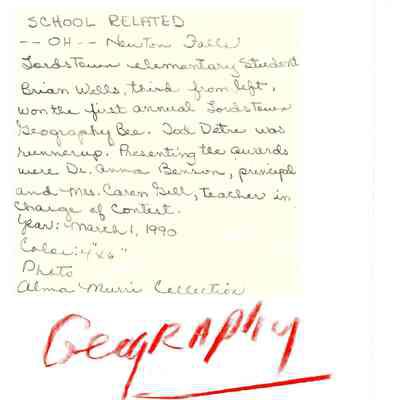 SCHOOL RELATED
-- OH -- Newton Falls
Lordstown elementary Student
Brian Wells, third from left,
won the first annual Lordstown
Geography Bee. Tod Detre was
runnerup. Presenting the awards
were Dr. Anna Benson, principal
and Mrs. Caren Gill, teacher in
charge of contest.
Year: March 1, 1990
Color: 4"x6"
Photo
Alma Murri Collection
Geography